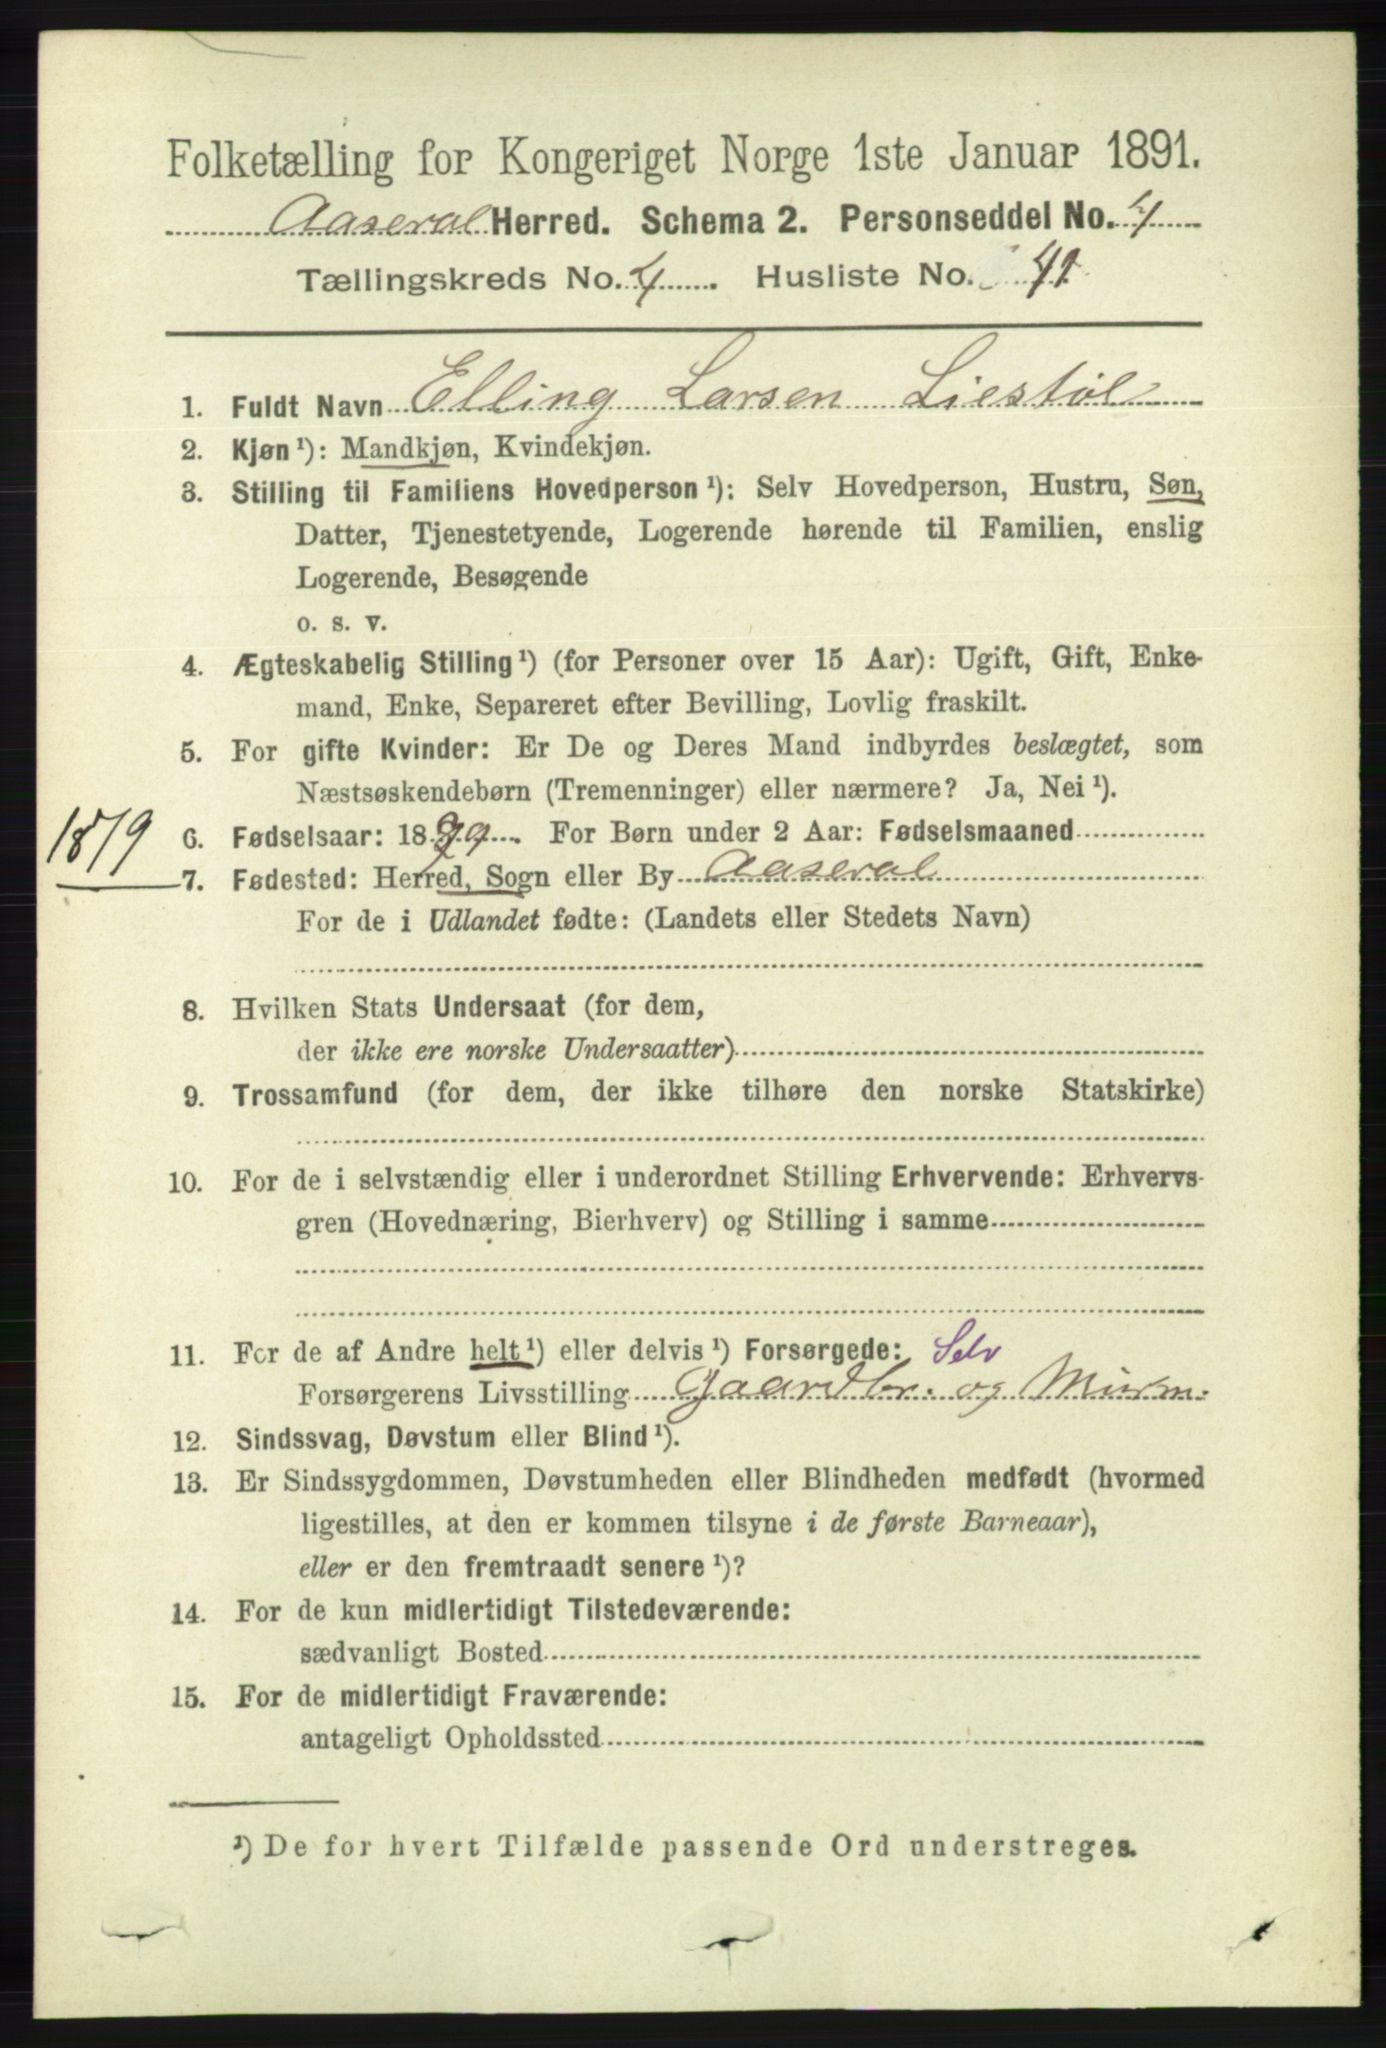 Folketælling for Kongeriget Norge 1ste Januar 1891.
Aaseral Herred. Schema 2. Personseddel No. 4
Tællingskreds No. 4. Husliste No. 41
1. Fuldt Navn Elling Larsen Liestøl
2. Kjøn ¹): Mandkjøn, Kvindekjøn.
3. Stilling til Familiens Hovedperson ¹): Selv Hovedperson, Hustru, Søn,
Datter, Tjenestetyende, Logerende hørende til Familien, enslig
Logerende, Besøgende
o. s. v.
4. Ægteskabelig Stilling ¹) (for Personer over 15 Aar): Ugift, Gift, Enke-
mand, Enke, Separeret efter Bevilling, Lovlig fraskilt.
5. For gifte Kvinder: Er De og Deres Mand indbyrdes beslægtet, som
Næstsøskendebørn (Tremenninger) eller nærmere? Ja, Nei ¹).
1879
6. Fødselsaar: 1879. For Børn under 2 Aar: Fødselsmaaned
7. Fødested: Herred, Sogn eller By Aaseral
For de i Udlandet fødte: (Landets eller Stedets Navn)
8. Hvilken Stats Undersaat (for dem,
der ikke ere norske Undersaatter)
9. Trossamfund (for dem, der ikke tilhøre den norske Statskirke)
10. For de i selvstændig eller i underordnet Stilling Erhvervende: Erhvervs-
gren (Hovednæring, Bierhverv) og Stilling i samme
11. For de af Andre helt ¹) eller delvis ¹) Forsørgede: Selv
Forsørgerens Livsstilling Gaardbr. og Murm.
12. Sindssvag, Døvstum eller Blind ¹).
13. Er Sindssygdommen, Døvstumheden eller Blindheden medfødt (hvormed
ligestilles, at den er kommen tilsyne i de første Barneaar),
eller er den fremtraadt senere ¹)?
14. For de kun midlertidigt Tilstedeværende:
sædvanligt Bosted
15. For de midlertidigt Fraværende:
antageligt Opholdssted
¹) De for hvert Tilfælde passende Ord understreges.